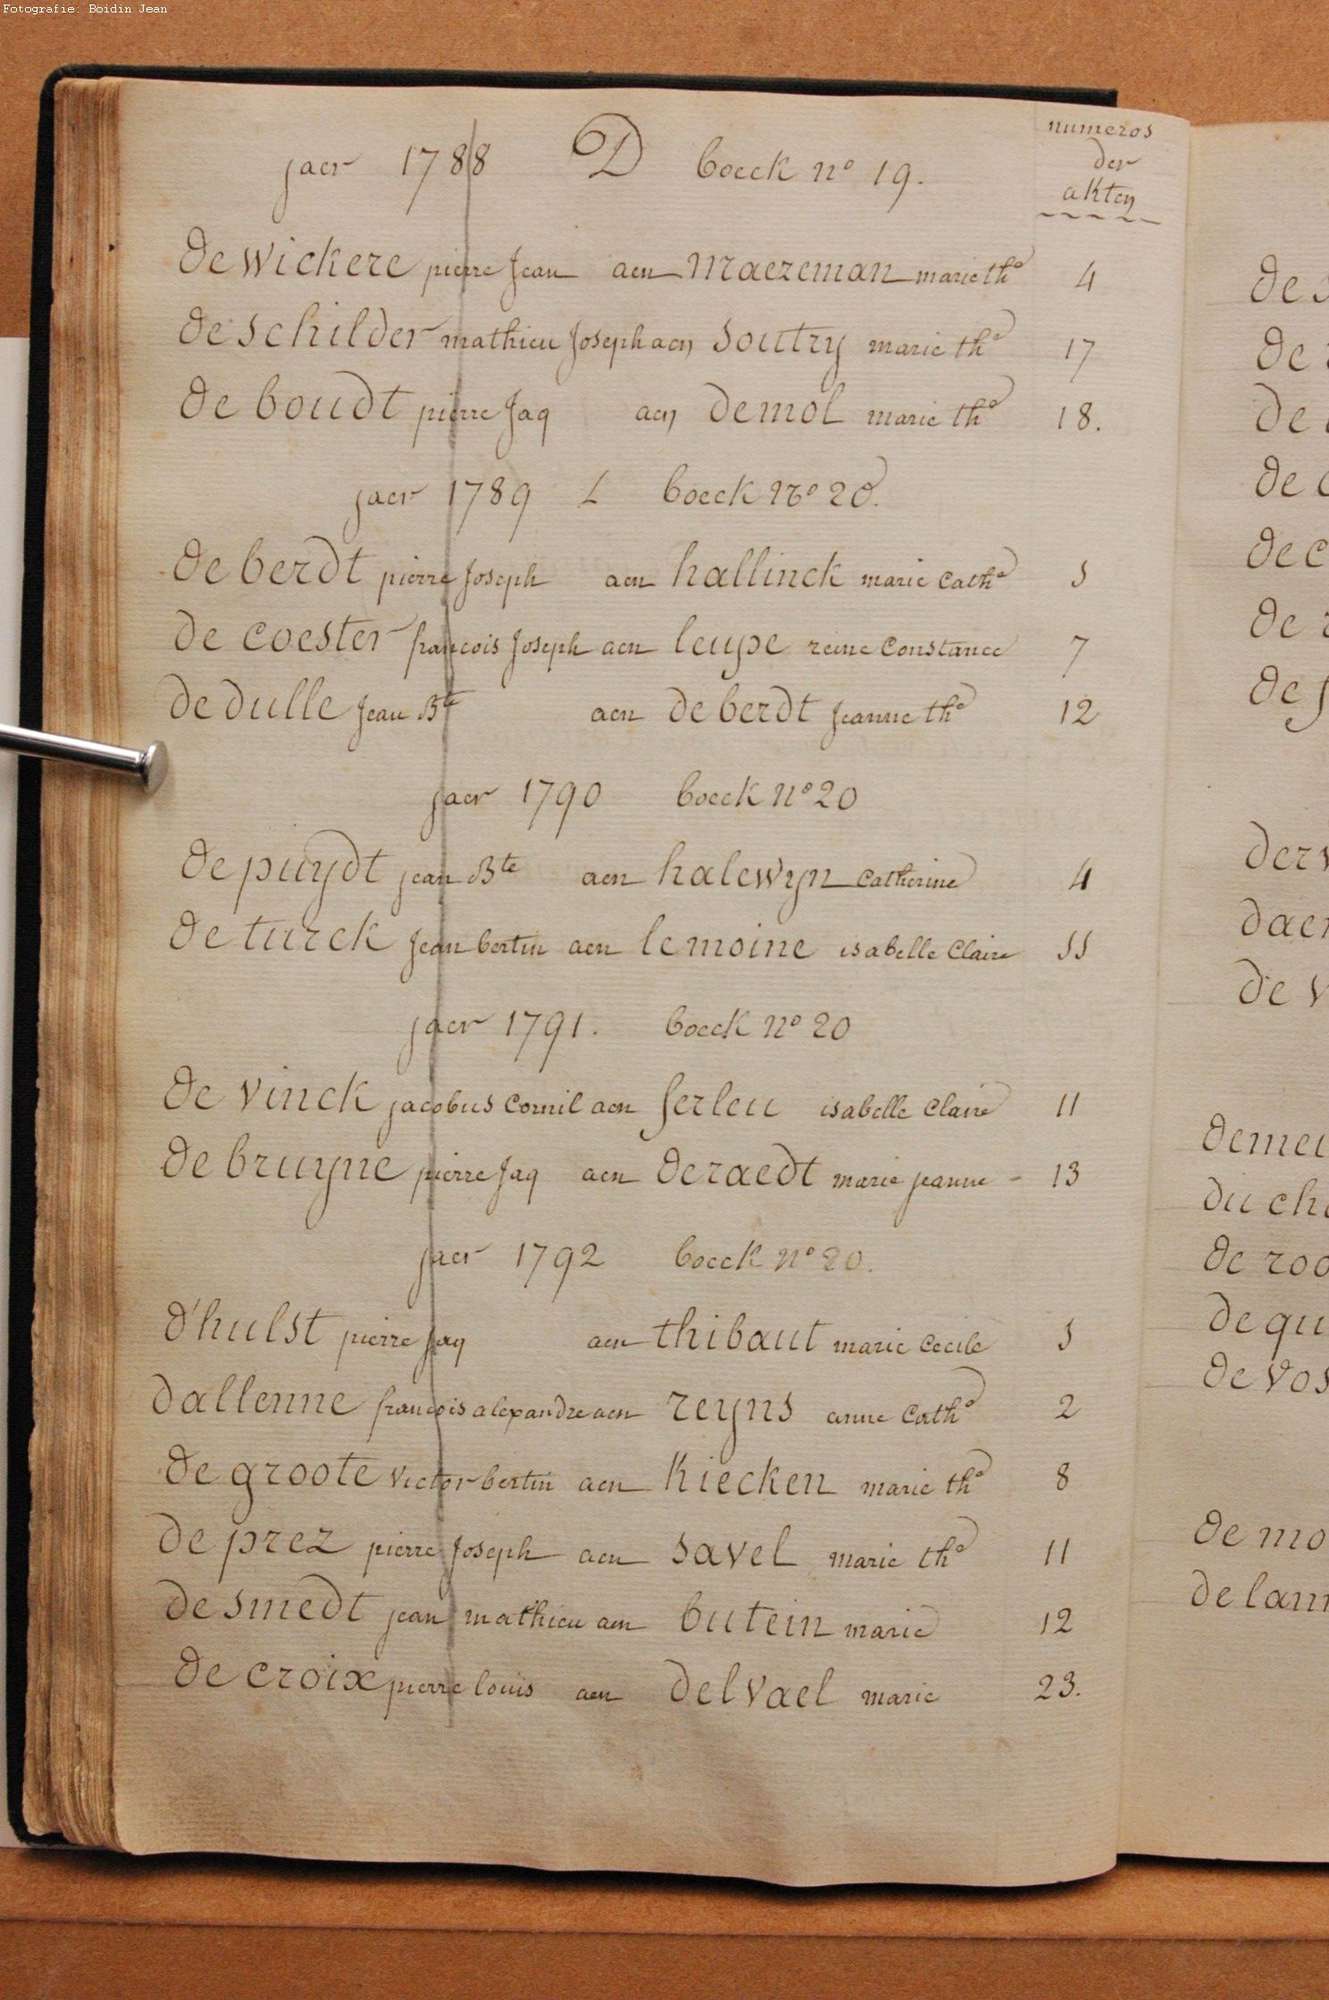 Fotografie: Boidin Jean
numeros
der
akten
jaer 1788 D boeck n° 19.
de wickere pierre Jean aen maezeman marie the 4
de schilder mathieu Joseph aen soutry marie the 17
de boudt pierre Jaq aen demol marie the 18.
jaer 1789 boeck no 20.
de berdt pierre Joseph aen hallinck marie cathe 5
de coester francois Joseph aen leupe reine constance 7
de dulle Jean Bte aen de berdt Jeanne the 12
jaer 1790 boeck n° 20
de puydt jean Bte aen halewyn catherine 4
de turck Jean bertin aen lemoine isabelle claire 11
jaer 1791. boeck n° 20
de vinck jacobus cornil aen ferleu isabelle claire 11
de bruyne pierre Jaq aen deraedt marie jeanne - 13
jaer 1792 boeck n° 20.
d'hulst pierre jaq aen thibaut marie cecile 5
dallenne francois alexandre aen reyns anne cathe 2
de groote victor bertin aen kiecken marie the 8
de prez pierre Joseph aen savel marie the 11
de smedt jean mathieu aen butein marie 12
de croix pierre louis aen delvael marie 23.
de
de
de
de
de c
de
de
derv
daer
de v
demei
du ch
de roo
de qu
de vos
de mo
de lan